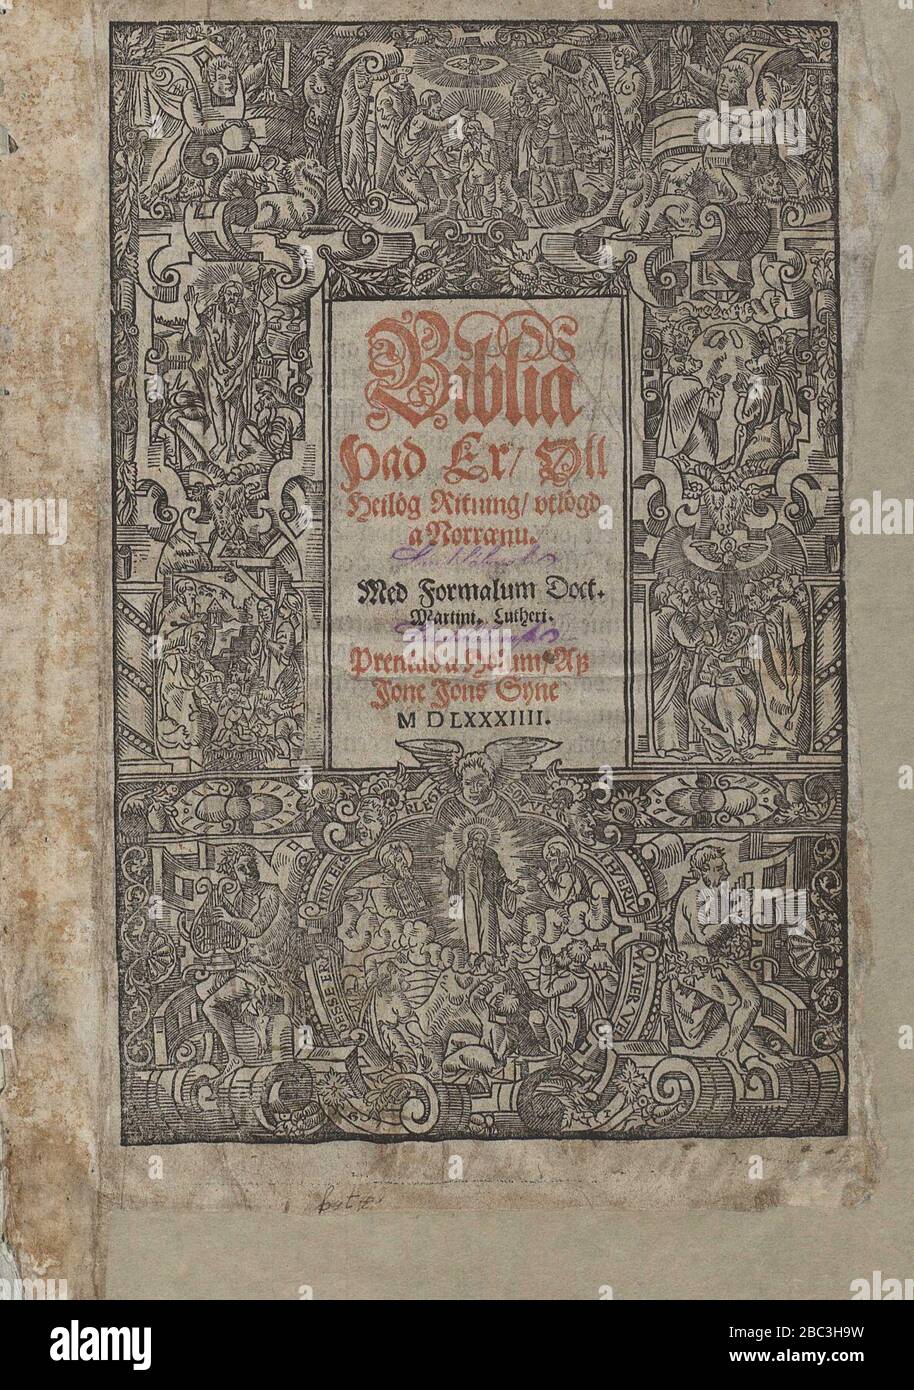 Biblia
Þad Er/ Øll
Heilög Ritning/ vtlögd
a Norrænu.
Med Formalum Doct.
Martini. Lutheri.
Prentad a Holum/ Af
Jone Jons Syne
M DLXXXIIII.
alamy
Image ID: 2BC3H9W
www.alamy.com